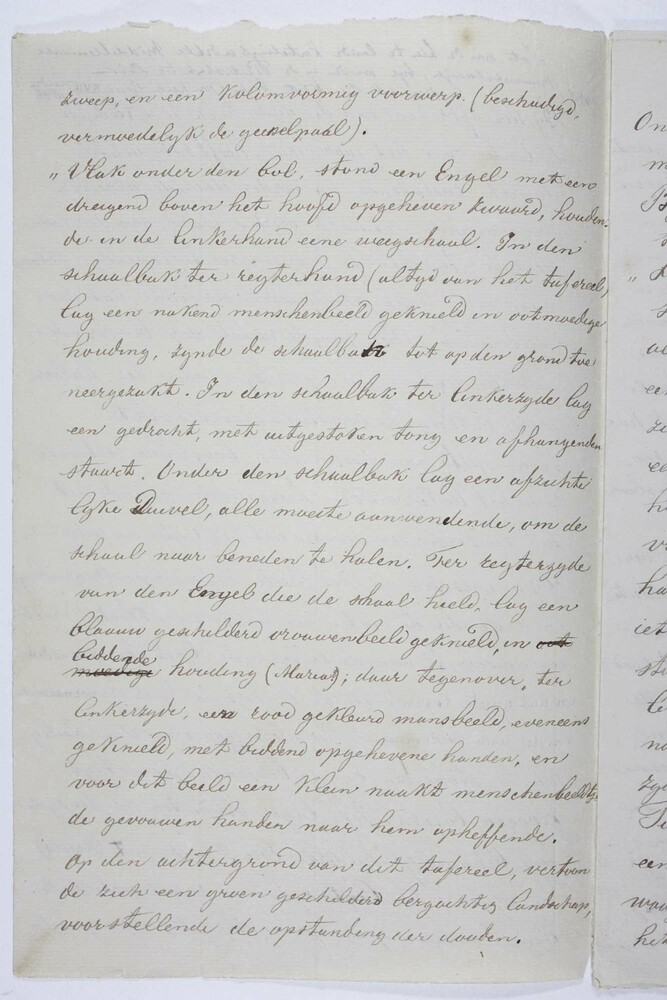 zweep, en een kolomvormig voorwerp. (beschadigd,
vermoedelyk de geeselpaal).
„ Vlak onder den bol, stond een Engel met een
dreigend boven het hoofd opgeheven zwaard, houden-
de in de linkerhand eene weegschaal. In den
schaalbak ter regterhand (altyd van het tafereel)
lag een nakend menschenbeeld geknield in ootmoedige
houding, zynde de schaalbak tot op den grond toe
neergezakt. In den schaalbak ter linkerzyde lag
een gedrocht, met uitgestoken tong en afhangenden
staart. Onder den schaalbak lag een afzichte
lyke Duivel, alle moeite aanwendende, om de
schaal naar beneden te halen. Ter regterzyde
van den Engel die de schaal hield, lag een
blaauw geschilderd vrouwenbeeld geknield, in oot
biddende
moedige houding (Maria?); daar tegenover, ter
linkerzyde, een rood gekleurd mansbeeld, eveneens
geknield, met biddend opgehevene handen, en
voor dit beeld een klein naakt menschenbeeldtje
de gevouwen handen naar hem opheffende.
Op den achtergrond van dit tafereel, vertoon
de zich een groen geschilderd bergachtig landschap,
voorstellende de opstanding der dooden.
On